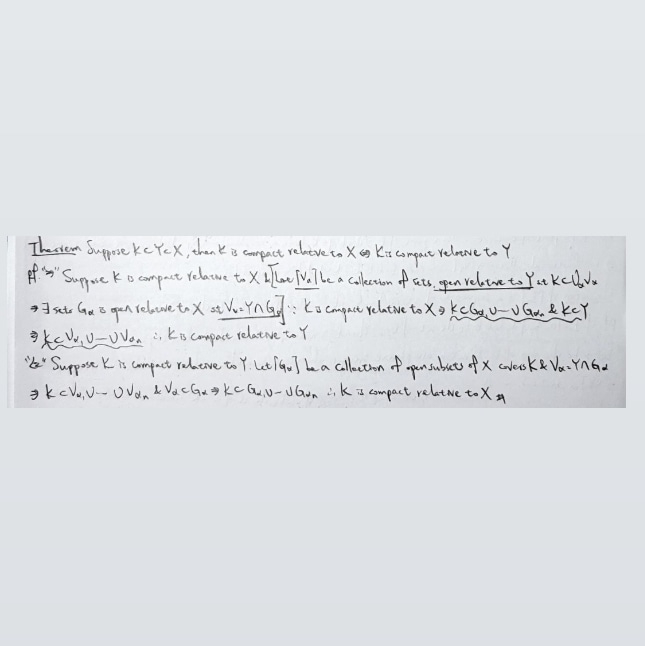 Theorem Suppose K⊂Y⊂X, then K is compact relative to X ⇔ K is compact relative to Y
pf "⇒" Suppose K is compact relative to X & [Let {Vα} be a collection of sets, open relative to Y st K⊂∪Vα
⇒ ∃ sets Gα is open relative to X st Vα=Y∩Gα] ∵ K is compact relative to X ⇒ K⊂Gα₁∪--∪Gαₙ & K⊂Y
⇒ K⊂Vα₁∪--∪Vαₙ ∴ K is compact relative to Y
"⇐" Suppose K is compact relative to Y. Let {Gα} be a collection of open subsets of X covers K & Vα=Y∩Gα
⇒ K⊂Vα₁∪--∪Vαₙ & Vα⊂Gα ⇒ K⊂Gα₁∪--∪Gαₙ ∴ K is compact relative to X